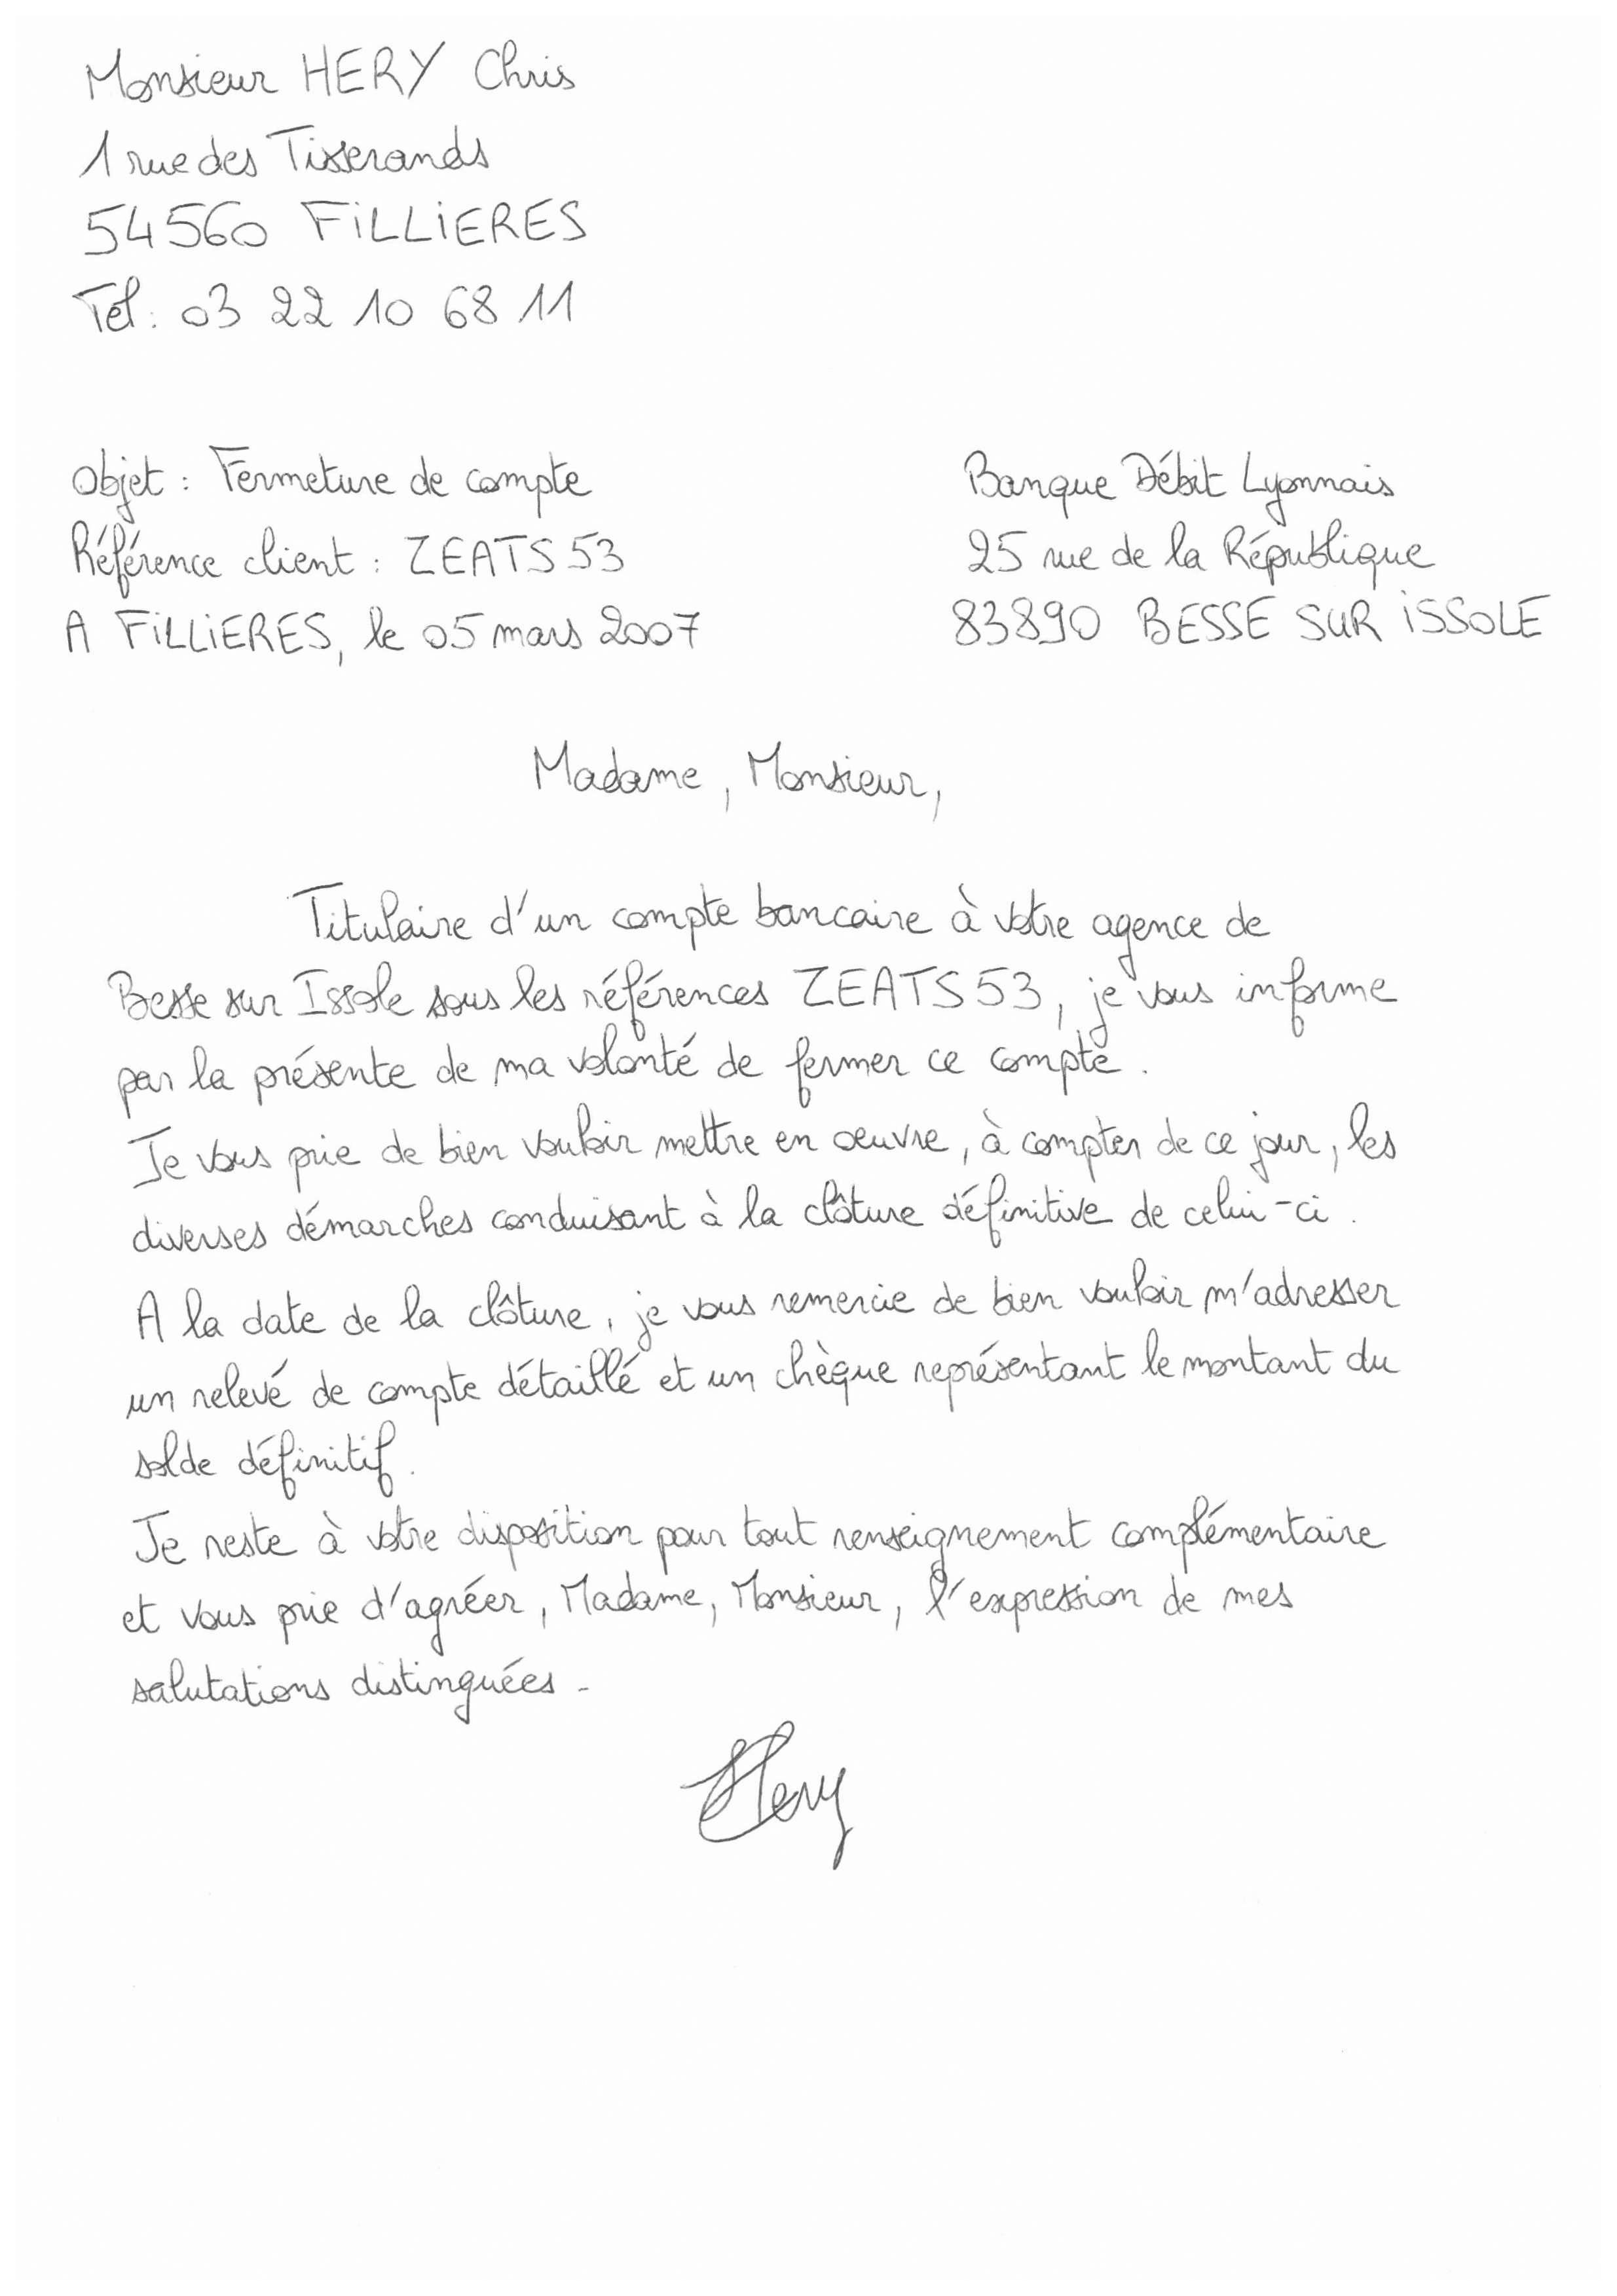 Monsieur HERY Chris
1 rue des Tisserands
54560 FiLLiERES
Tel: 03 22 10 68 11
Objet : Fermeture de compte
Référence client : ZEATS53
A FiLLiERES, le 05 mars 2007
Banque Débit Lyonnais
25 rue de la République
83890 BESSE SUR iSSOLE
Madame, Monsieur,
Titulaire d'un compte bancaire à votre agence de
Besse sur Issole sous les références ZEATS53, je vous informe
par la présente de ma volonté de fermer ce compte.
Je vous prie de bien vouloir mettre en oeuvre, à compter de ce jour, les
diverses démarches conduisant à la clôture définitive de celui-ci.
A la date de la clôture, je vous remercie de bien vouloir m'adresser
un relevé de compte détaillé et un chèque représentant le montant du
solde définitif.
Je reste à votre disposition pour tout renseignement complémentaire
et vous prie d'agréer, Madame, Monsieur, l'expression de mes
salutations distinguées.
Hery